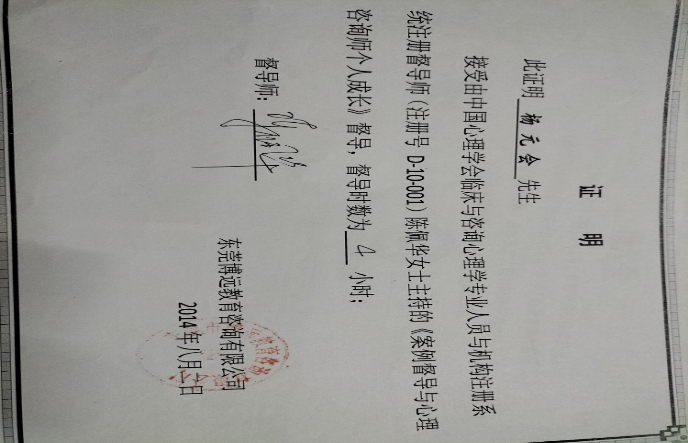 证 明
此证明 杨元会 先生
接受由中国心理学会临床与咨询心理学专业人员与机构注册系
统注册督导师（注册号 D-10-001）陈佩华女士主持的《案例督导与心理
咨询师个人成长》督导，督导时数为 4 小时；
督导师：
东莞博远教育咨询有限公司
2014年八月二日